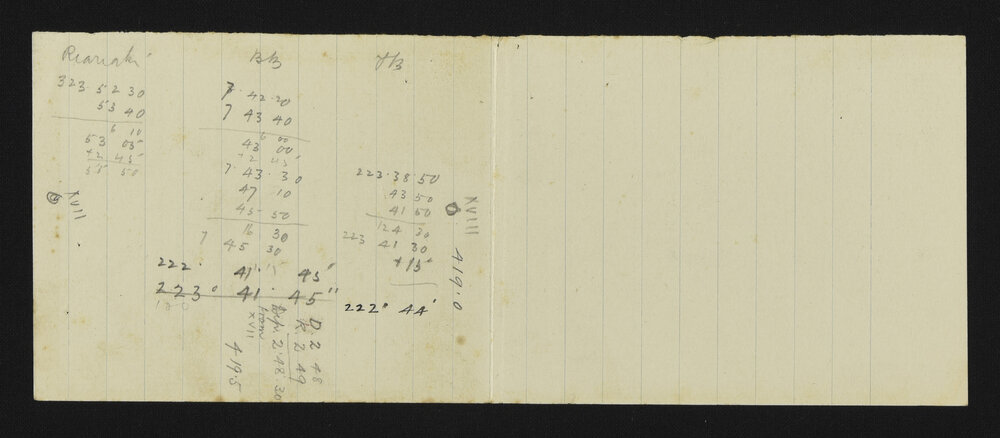 BB
JB
323. 52 30
53 40
6 10
53 05
+2 45
55 50
XVIII
7. 42 20
7 43 40
6 00
43 00
+2 45
7. 43. 30
47 10
45 50
16 30
7 45 30
222° 41' 45"
223° 41' 45"
180
223. 38 50
43 50
41 50
124 30
223 41 30
+ 15"
222° 44'
XVIII 419.0
D. 2 48
R. 2 49
2. 48. 30
from XVII
419.5